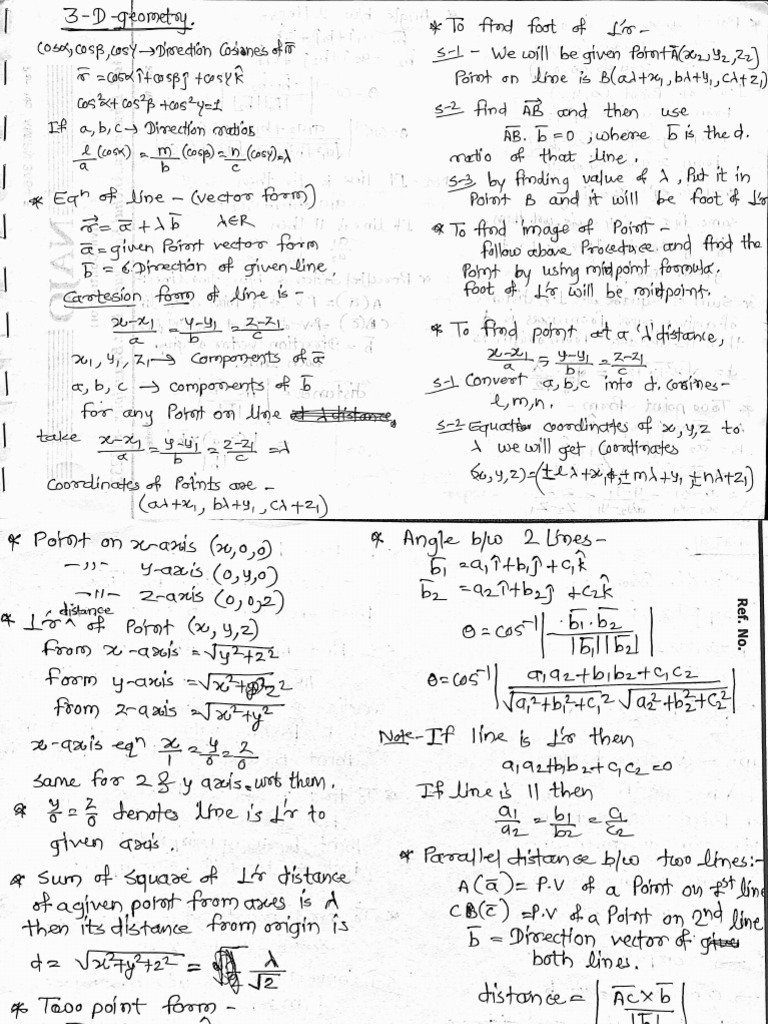 3-D-geometry.
cosα, cosβ, cosγ → Direction Cosines of r̄
r̄ = cosα î + cosβ ĵ + cosγ k̂
cos²α + cos²β + cos²γ = 1
If a, b, c → Direction ratios
l/a (cosα) = m/b (cosβ) = n/c (cosγ) = λ
* Eqⁿ of line - (vector form)
r⃗ = a̅ + λ b̅   λ∈R
a̅ = given Point vector form
b̅ = Direction of given line.
Cartesion form of line is -
x-x₁/a = y-y₁/b = z-z₁/c
x₁, y₁, z₁ → Components of a̅
a, b, c → components of b̅
for any Point on line
take x-x₁/a = y-y₁/b = z-z₁/c = λ
Coordinates of Points are -
(aλ+x₁, bλ+y₁, cλ+z₁)
* To find foot of ⊥r -
S-1 - We will be given Point A(x₂, y₂, z₂)
Point on line is B(aλ+x₁, bλ+y₁, cλ+z₁)
S-2 find AB⃗ and then use
A̅B̅ . b̅ = 0, where b̅ is the d.
ratio of that line.
S-3 by finding value of λ, Put it in
Point B and it will be foot of ⊥r
* To find image of Point -
follow above Procedure and find the
Point by using midpoint formula.
foot of ⊥r will be midpoint.
* To find point at a 'λ' distance,
x-x₁/a = y-y₁/b = z-z₁/c
S-1 Convert a, b, c into d. cosines -
l, m, n.
S-2 Equate coordinates of x, y, z to
λ we will get Coordinates
(x, y, z) = (±lλ+x₁, ±mλ+y₁, ±nλ+z₁)
* Point on x-axis (x, 0, 0)
-"- y-axis (0, y, 0)
-"- z-axis (0, 0, z)
* ⊥r distance of Point (x, y, z)
from x-axis = √y²+z²
form y-axis = √x²+z²
from z-axis = √x²+y²
x-axis eqⁿ x/1 = y/0 = z/0
same for z & y axis. wrt them.
* y/0 = z/0 denotes line is ⊥r to
given axis.
* Sum of Square of ⊥r distance
of a given point from axes is λ
then its distance from origin is
d = √x²+y²+z² = λ/√2
* Two point form -
* Angle b/w 2 lines -
b̅₁ = a₁î + b₁ĵ + c₁k̂
b̅₂ = a₂î + b₂ĵ + c₂k̂
θ = cos⁻¹ | b̅₁.b̅₂ / |b̅₁||b̅₂| |
θ = cos⁻¹ | a₁a₂+b₁b₂+c₁c₂ / √a₁²+b₁²+c₁² √a₂²+b₂²+c₂² |
Note - If line is ⊥r then
a₁a₂+b₁b₂+c₁c₂ = 0
If line is || then
a₁/a₂ = b₁/b₂ = c₁/c₂
* Parallel distance b/w two lines:-
A(a̅) = P.V of a Point on 1st line
C(c̅) = P.V of a Point on 2nd line
b̅ = Direction vector of
both lines.
distance = | A̅C̅ × b̅ / |b̅| |
Ref. No.